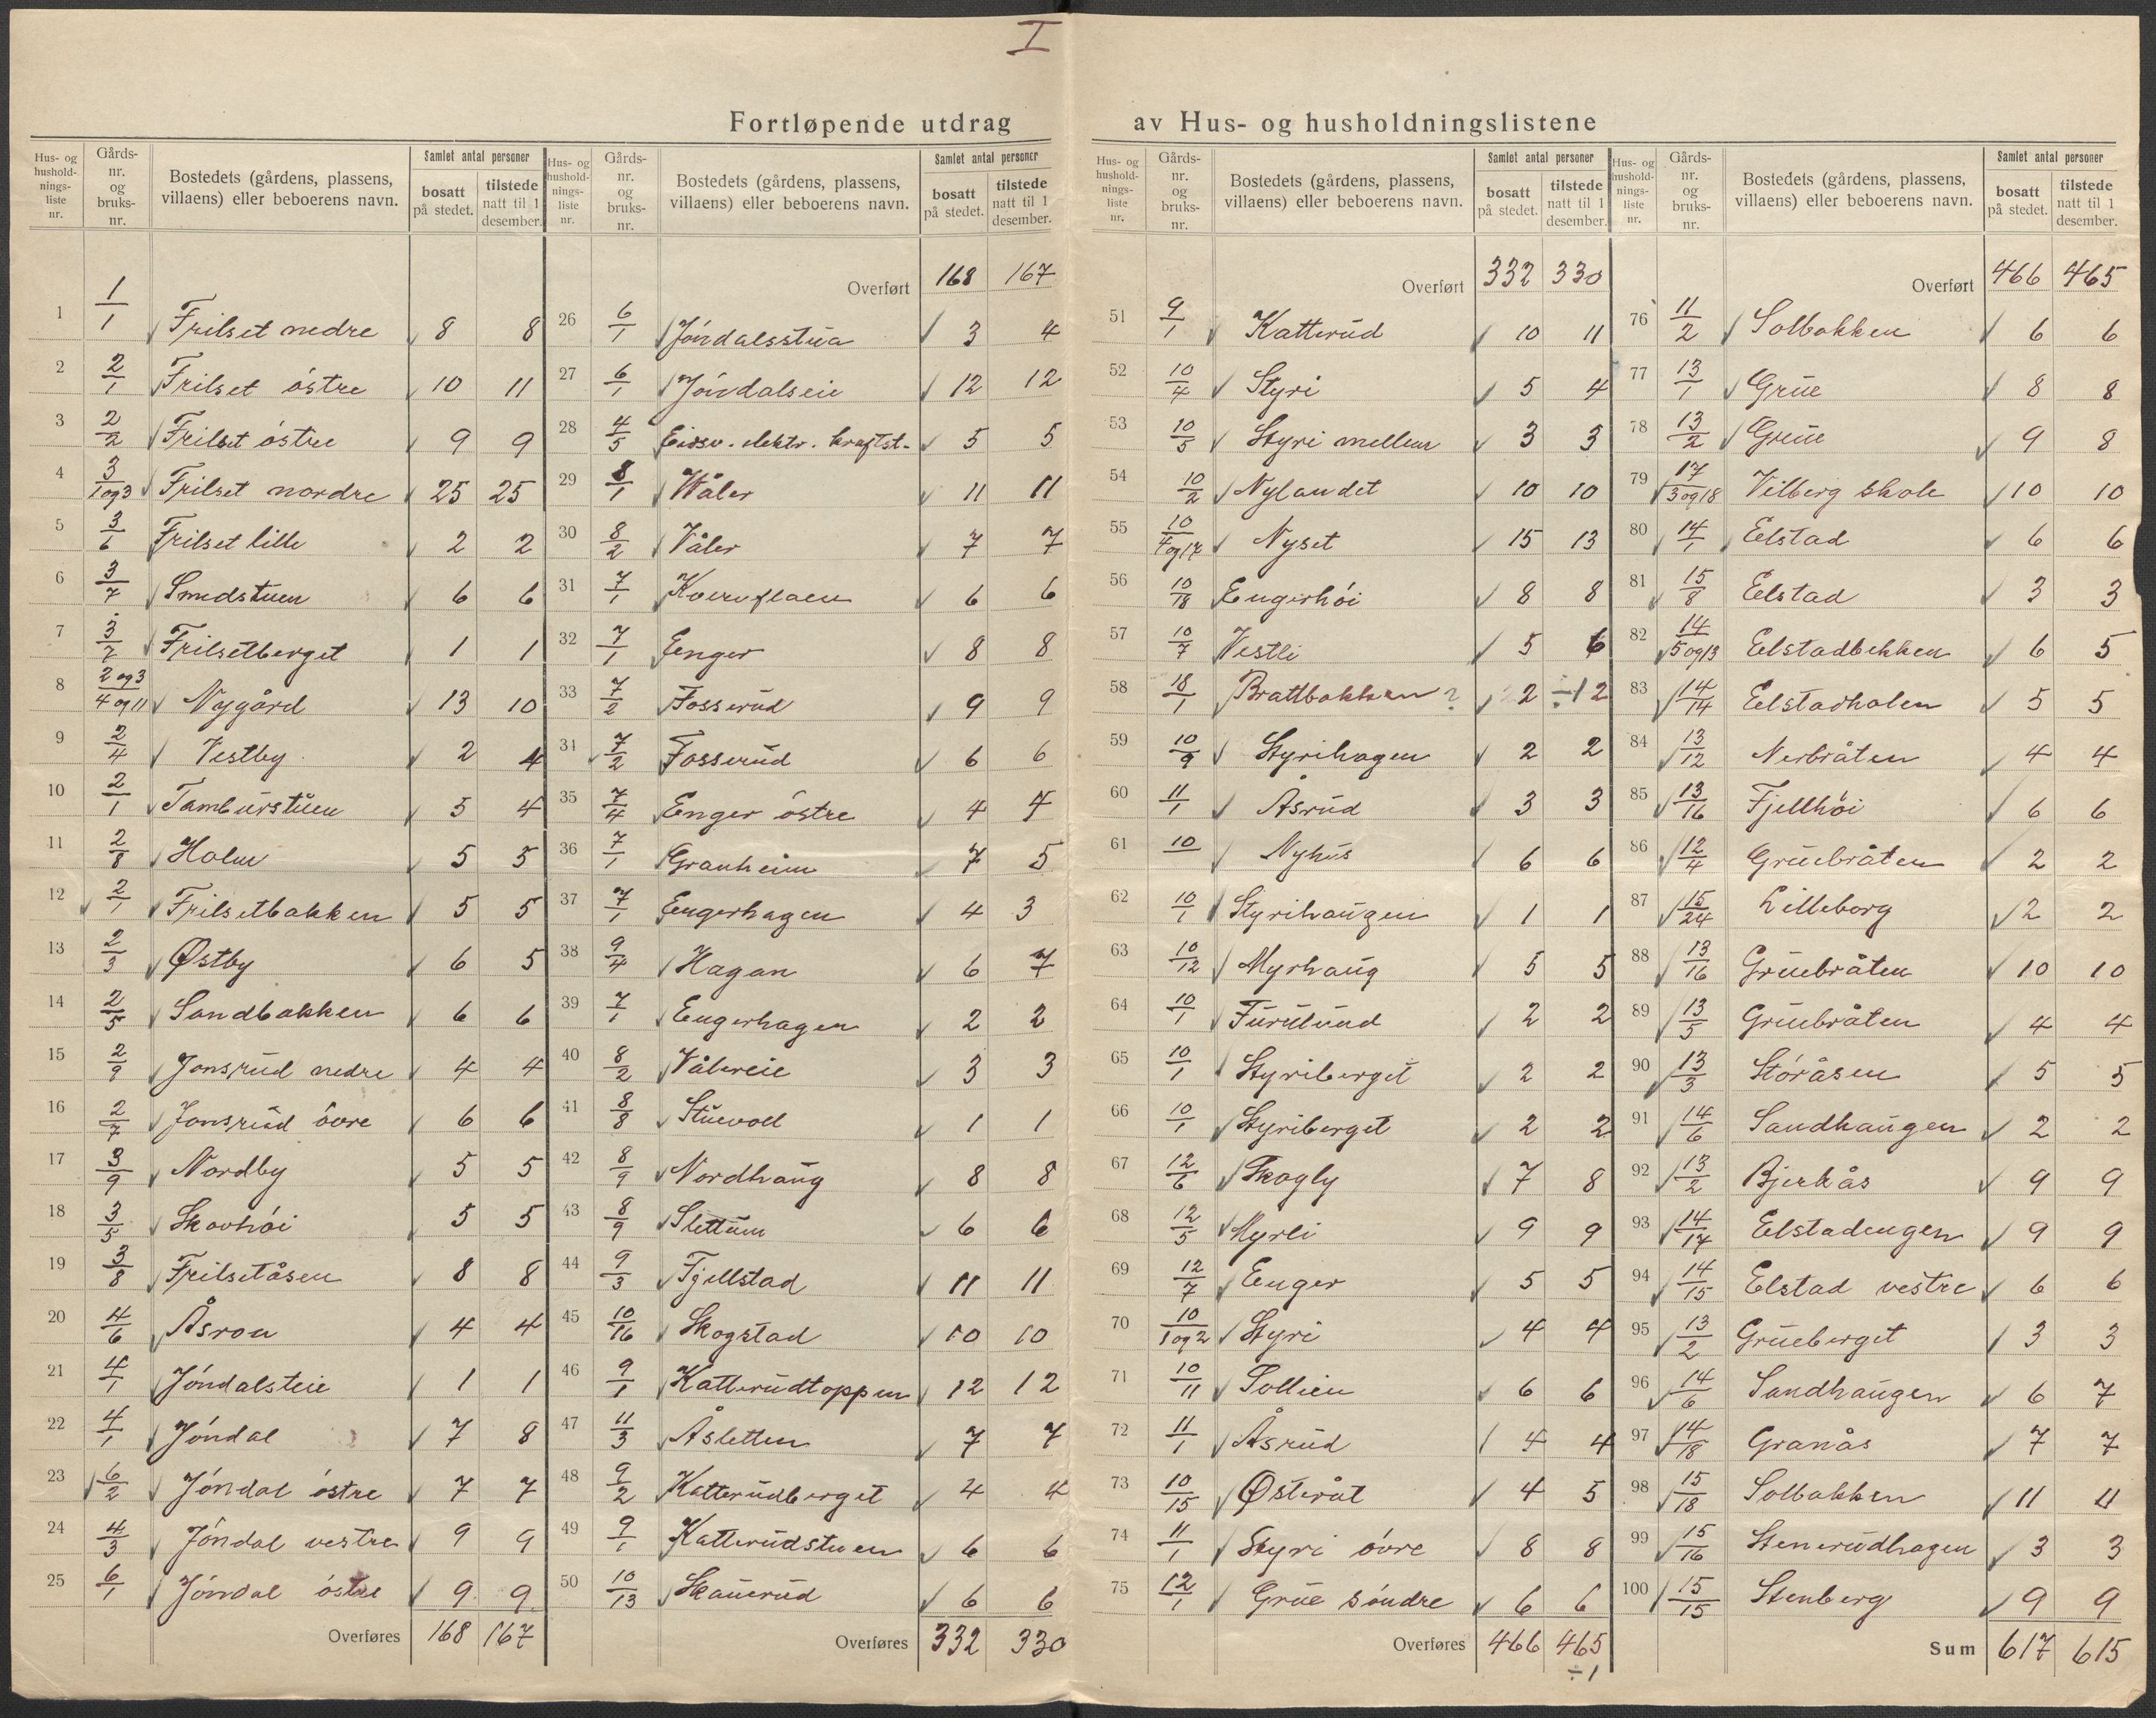 I
Fortløpende utdrag av Hus- og husholdningslistene
Hus- og husholdnings-liste nr. | Gårds-nr. og bruks-nr. | Bostedets (gårdens, plassens, villaens) eller beboerens navn. | Samlet antal personer | bosatt på stedet. | tilstede natt til 1 desember.
1 1/1 Frilset nedre 8 8
2 2/1 Frilset östre 10 11
3 2/2 Frilset östre 9 9
4 3/1og3 Frilset nordre 25 25
5 3/6 Frilset lille 2 2
6 3/7 Smedstuen 6 6
7 3/7 Frilsetberget 1 1
8 2og3/4og11 Nygård 13 10
9 2/4 Vestby 2 4
10 2/1 Tambúrstúen 5 4
11 2/8 Holm 5 5
12 2/1 Frilsetbakken 5 5
13 2/3 Østby 6 5
14 2/5 Sandbakken 6 6
15 2/9 Jonsrud nedre 4 4
16 2/7 Jonsrud övre 6 6
17 3/9 Nordby 5 5
18 3/5 Skovhöi 5 5
19 3/8 Frilsetåsen 8 8
20 4/6 Åsron 4 4
21 4/1 Jöndalsteie 1 1
22 4/1 Jöndal 7 8
23 6/2 Jöndal östre 7 7
24 4/3 Jöndal vestre 9 9
25 6/1 Jöndal östre 9 9
Overføres 168 167
Hus- og husholdnings-liste nr. | Gårds-nr. og bruks-nr. | Bostedets (gårdens, plassens, villaens) eller beboerens navn. | Samlet antal personer | bosatt på stedet. | tilstede natt til 1 desember.
Overført 168 167
26 6/1 Jöndalsstua 3 4
27 6/1 Jöndalseie 12 12
28 4/5 Eidsv. elektr. kraftst. 5 5
29 8/1 Våler 11 11
30 8/2 Våler 7 7
31 7/1 Kvernflaen 6 6
32 7/1 Enger 8 8
33 7/2 Fosserud 9 9
34 7/2 Fosserud 6 6
35 7/4 Enger östre 4 4
36 7/1 Granheim 7 5
37 7/1 Engerhagen 4 3
38 9/4 Hagan 6 7
39 7/1 Engerhagen 2 2
40 8/2 Vålereie 3 3
41 8/8 Stuevoll 1 1
42 8/9 Nordhaug 8 8
43 8/9 Slettum 6 6
44 9/3 Fjellstad 11 11
45 10/16 Skogstad 10 10
46 9/1 Katterudtoppen 12 12
47 11/3 Åsletten 7 7
48 9/2 Katterudberget 4 4
49 9/1 Katterudstuen 6 6
50 10/13 Skauerud 6 6
Overføres 332 330
Hus- og husholdnings-liste nr. | Gårds-nr. og bruks-nr. | Bostedets (gårdens, plassens, villaens) eller beboerens navn. | Samlet antal personer | bosatt på stedet. | tilstede natt til 1 desember.
Overført 332 330
51 9/1 Katterud 10 11
52 10/4 Styri 5 4
53 10/5 Styri mellem 3 3
54 10/2 Nylandet 10 10
55 10/4og17 Nyset 15 13
56 10/18 Engerhöi 8 8
57 10/7 Vestli 5 6
58 18/1 Brattbakken? 2 ÷1 2
59 10/9 Styrihagen 2 2
60 11/1 Åsrud 3 3
61 10/ Nyhus 6 6
62 10/1 Styrihaugen 1 1
63 10/12 Myrhaug 5 5
64 10/1 Furulund 2 2
65 10/1 Styriberget 2 2
66 10/1 Styriberget 2 2
67 12/6 Skogly 7 8
68 12/5 Myrli 9 9
69 12/7 Enger 5 5
70 10/1og2 Styri 4 4
71 10/11 Sollien 6 6
72 11/1 Åsrud 4 4
73 10/15 Østeråt 4 5
74 11/1 Styri övre 8 8
75 12/1 Grue söndre 6 6
Overføres 466 465
÷1
Hus- og husholdnings-liste nr. | Gårds-nr. og bruks-nr. | Bostedets (gårdens, plassens, villaens) eller beboerens navn. | Samlet antal personer | bosatt på stedet. | tilstede natt til 1 desember.
Overført 466 465
76 11/2 Solbakken 6 6
77 13/1 Grue 8 8
78 13/2 Grue 9 8
79 17/3og18 Vilberg skole 10 10
80 14/1 Eelstad 6 6
81 15/8 Eelstad 3 3
82 14/5og13 Eelstadbekken 6 5
83 14/14 Eelstadholen 5 5
84 13/12 Nerbråten 4 4
85 13/16 Fjellhöi 6 6
86 12/4 Gruebråten 2 2
87 15/24 Lilleborg 2 2
88 13/16 Gruebråten 10 10
89 13/5 Gruebråten 4 4
90 13/3 Storåsen 5 5
91 14/6 Sandhaugen 2 2
92 13/2 Bjerkås 9 9
93 14/17 Eelstadengen 9 9
94 14/15 Eelstad vestre 6 6
95 13/2 Grueberget 3 3
96 14/6 Sandhaugen 6 7
97 14/18 Granås 7 7
98 15/18 Solbakken 11 11
99 15/16 Stenerudhagen 3 3
100 15/15 Stenberg 9 9
Sum 617 615